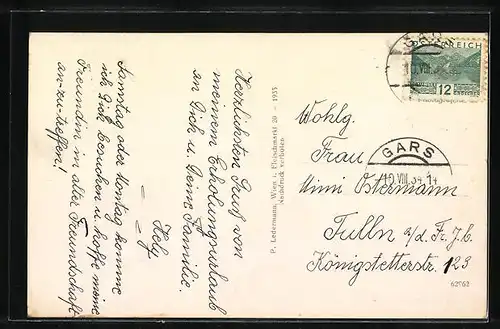 Herzlichsten Gruß von
meinem Erholungsurlaub
an Dich u. Deine Familie.
Samstag oder Montag komme
ich Dich besuchen u. hoffe meine
Freundin in alter Freundschaft
an-zu-treffen!
P. Ledermann, Wien I, Fleischmarkt 20 - 1933
Nachdruck verboten
ÖSTERREICH
12
GARS
10.VIII.34.14
Wohlg.
Frau
Mimi Ostermann
Tulln a/d. Fr. J. b.
Königstetterstr. 129